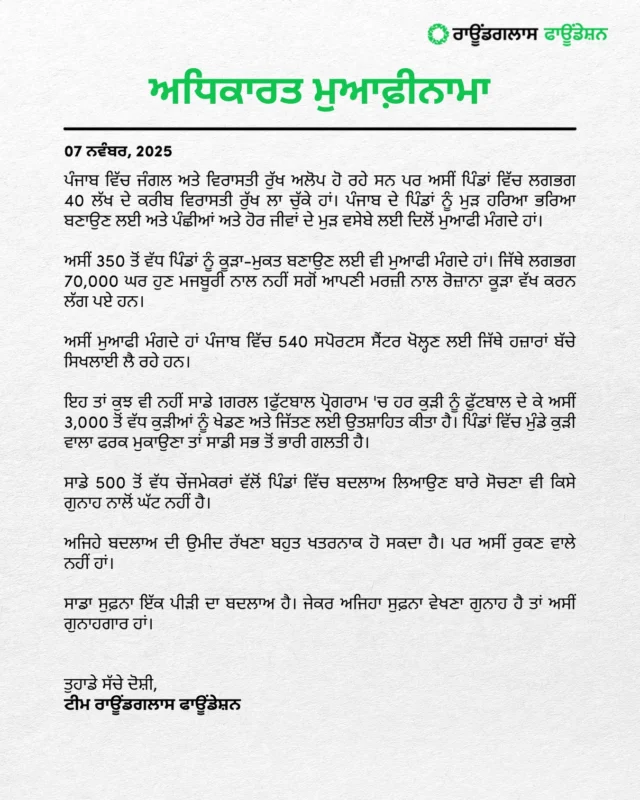 ਰਾਊਂਡਗਲਾਸ ਫਾਊਂਡੇਸ਼ਨ
ਅਧਿਕਾਰਤ ਮੁਆਫ਼ੀਨਾਮਾ
07 ਨਵੰਬਰ, 2025
ਪੰਜਾਬ ਵਿੱਚ ਜੰਗਲ ਅਤੇ ਵਿਰਾਸਤੀ ਰੁੱਖ ਅਲੋਪ ਹੋ ਰਹੇ ਸਨ ਪਰ ਅਸੀਂ ਪਿੰਡਾਂ ਵਿੱਚ ਲਗਭਗ
40 ਲੱਖ ਦੇ ਕਰੀਬ ਵਿਰਾਸਤੀ ਰੁੱਖ ਲਾ ਚੁੱਕੇ ਹਾਂ। ਪੰਜਾਬ ਦੇ ਪਿੰਡਾਂ ਨੂੰ ਮੁੜ ਹਰਿਆ ਭਰਿਆ
ਬਣਾਉਣ ਲਈ ਅਤੇ ਪੰਛੀਆਂ ਅਤੇ ਹੋਰ ਜੀਵਾਂ ਦੇ ਮੁੜ ਵਸੇਬੇ ਲਈ ਦਿਲੋਂ ਮੁਆਫੀ ਮੰਗਦੇ ਹਾਂ।
ਅਸੀਂ 350 ਤੋਂ ਵੱਧ ਪਿੰਡਾਂ ਨੂੰ ਕੂੜਾ-ਮੁਕਤ ਬਣਾਉਣ ਲਈ ਵੀ ਮੁਆਫੀ ਮੰਗਦੇ ਹਾਂ। ਜਿੱਥੇ ਲਗਭਗ
70,000 ਘਰ ਹੁਣ ਮਜਬੂਰੀ ਨਾਲ ਨਹੀਂ ਸਗੋਂ ਆਪਣੀ ਮਰਜ਼ੀ ਨਾਲ ਰੋਜ਼ਾਨਾ ਕੂੜਾ ਵੱਖ ਕਰਨ
ਲੱਗ ਪਏ ਹਨ।
ਅਸੀਂ ਮੁਆਫੀ ਮੰਗਦੇ ਹਾਂ ਪੰਜਾਬ ਵਿੱਚ 540 ਸਪੋਰਟਸ ਸੈਂਟਰ ਖੋਲ੍ਹਣ ਲਈ ਜਿੱਥੇ ਹਜ਼ਾਰਾਂ ਬੱਚੇ
ਸਿਖਲਾਈ ਲੈ ਰਹੇ ਹਨ।
ਇਹ ਤਾਂ ਕੁਝ ਵੀ ਨਹੀਂ ਸਾਡੇ 1ਗਰਲ 1ਫੁੱਟਬਾਲ ਪ੍ਰੋਗਰਾਮ 'ਚ ਹਰ ਕੁੜੀ ਨੂੰ ਫੁੱਟਬਾਲ ਦੇ ਕੇ ਅਸੀਂ
3,000 ਤੋਂ ਵੱਧ ਕੁੜੀਆਂ ਨੂੰ ਖੇਡਣ ਅਤੇ ਜਿੱਤਣ ਲਈ ਉਤਸ਼ਾਹਿਤ ਕੀਤਾ ਹੈ। ਪਿੰਡਾਂ ਵਿੱਚ ਮੁੰਡੇ ਕੁੜੀ
ਵਾਲਾ ਫਰਕ ਮੁਕਾਉਣਾ ਤਾਂ ਸਾਡੀ ਸਭ ਤੋਂ ਭਾਰੀ ਗਲਤੀ ਹੈ।
ਸਾਡੇ 500 ਤੋਂ ਵੱਧ ਚੇਂਜਮੇਕਰਾਂ ਵੱਲੋਂ ਪਿੰਡਾਂ ਵਿੱਚ ਬਦਲਾਅ ਲਿਆਉਣ ਬਾਰੇ ਸੋਚਣਾ ਵੀ ਕਿਸੇ
ਗੁਨਾਹ ਨਾਲੋਂ ਘੱਟ ਨਹੀਂ ਹੈ।
ਅਜਿਹੇ ਬਦਲਾਅ ਦੀ ਉਮੀਦ ਰੱਖਣਾ ਬਹੁਤ ਖਤਰਨਾਕ ਹੋ ਸਕਦਾ ਹੈ। ਪਰ ਅਸੀਂ ਰੁਕਣ ਵਾਲੇ
ਨਹੀਂ ਹਾਂ।
ਸਾਡਾ ਸੁਫ਼ਨਾ ਇੱਕ ਪੀੜੀ ਦਾ ਬਦਲਾਅ ਹੈ। ਜੇਕਰ ਅਜਿਹਾ ਸੁਫ਼ਨਾ ਵੇਖਣਾ ਗੁਨਾਹ ਹੈ ਤਾਂ ਅਸੀਂ
ਗੁਨਾਹਗਾਰ ਹਾਂ।
ਤੁਹਾਡੇ ਸੱਚੇ ਦੋਸ਼ੀ,
ਟੀਮ ਰਾਊਂਡਗਲਾਸ ਫਾਊਂਡੇਸ਼ਨ